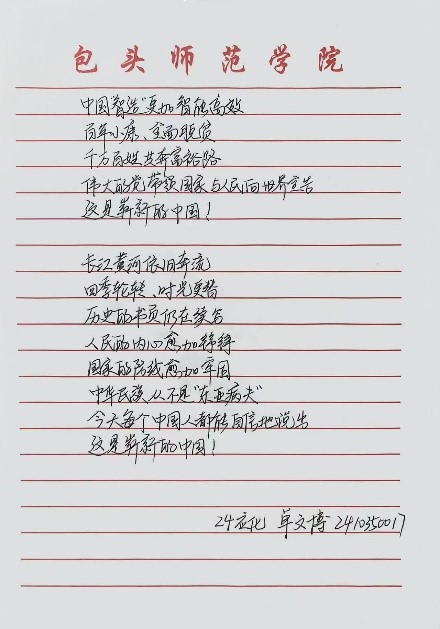 包头师范学院
中国"智造"更加智能高效
百年小康、全面脱贫
千万百姓共奔富裕路
伟大的党带领国家与人民向世界宣告
这是崭新的中国！
长江黄河依旧奔流
四季轮转、时光更替
历史的书页仍在续写
人民的内心愈加
国家的防线愈加牢固
中华民族从不是"东亚病夫"
今天每个中国人都能自信地说出
这是崭新的中国！
24应化 卓文博 2410350017